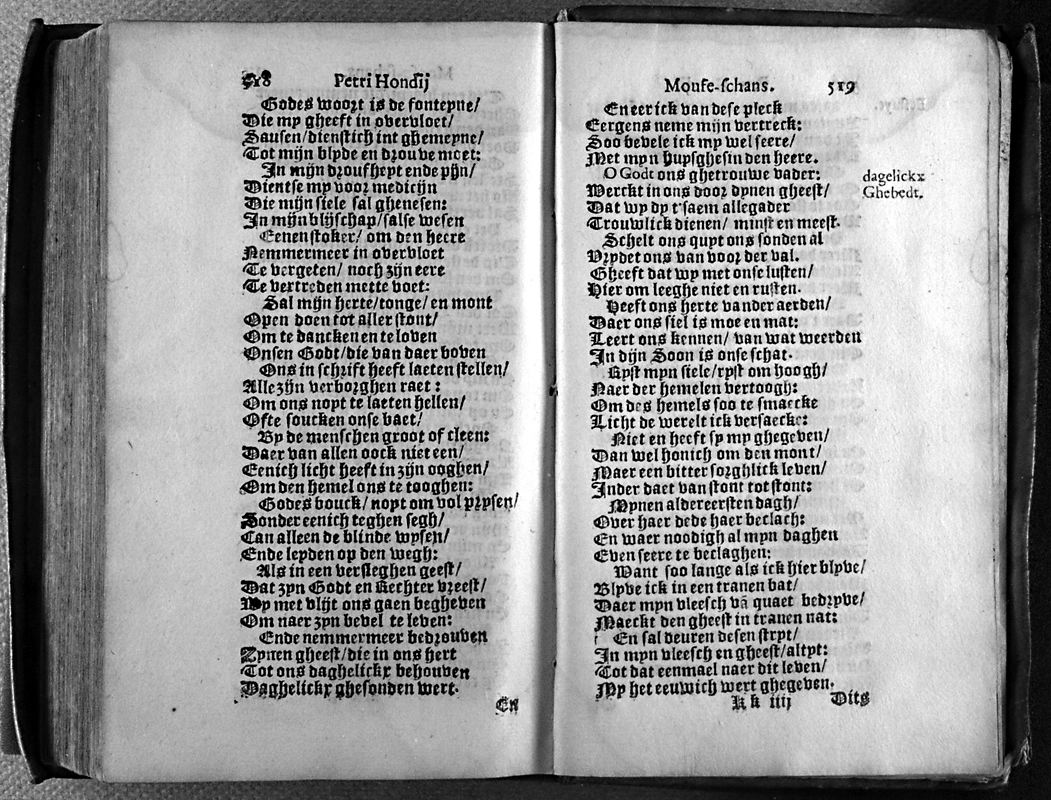 518 Petri Hondij
Godes woort is de fonteyne/
Die my gheeft in overvloet/
Sausen/dienstich int ghemeyne/
Tot mijn blyde en drouve moet:
In mijn droufheyt ende pijn/
Dientse my voor medicijn
Die mijn siele sal ghenesen:
In mijn blijschap/salse wesen
Eenen stoker/ om den heere
Nemmermeer in overvloet
Te vergeten/ noch zijn eere
Te vertreden mette voet:
Sal mijn herte/tonge/ en mont
Open doen tot aller stont/
Om te dancken en te loven
Onsen Godt/die van daer boven
Ons in schrift heeft laeten stellen/
Alle zijn verborghen raet:
Om ons noyt te laeten hellen/
Ofte soucken onse baet/
By de menschen groot of cleen:
Daer van allen oock niet een/
Eenich licht heeft in zijn ooghen/
Om den hemel ons te tooghen:
Godes bouck/ noyt om vol prysen/
Sonder eenich teghen segh/
Can alleen de blinde wysen/
Ende leyden op den wegh:
Als in een versleghen geest/
Dat zyn Godt en Rechter vreest/
Wy met vlijt ons gaen begheven
Om naer zyn bevel te leven:
Ende nemmermeer bedrouven
Zynen gheest/die in ons hert
Tot ons daghelickx behouven
Daghelickx ghesonden wert.
En
Mouse-schans. 519
En eer ick van dese pleck
Eergens neme mijn vertreck:
Soo bevele ick my wel seere/
Met myn huysghesin den heere.
O Godt ons ghetrouwe vader:
dagelickx
Ghebedt.
Werckt in ons door dynen gheest/
Dat wy dy t'saem allegader
Trouwlick dienen/ minst en meest.
Schelt ons quyt ons sonden al
Vrydet ons van voor der val.
Gheeft dat wy met onse lusten/
Hier om leeghe niet en rusten.
Heeft ons herte vander aerden/
Daer ons siel is moe en mat:
Leert ons kennen/ van wat weerden
In dijn Soon is onse schat.
Ryst myn siele/ryst om hoogh/
Naer der hemelen vertoogh:
Om des hemels soo te smaecke
Licht de werelt ick versaecke:
Niet en heeft sy my ghegeven/
Dan wel honich om den mont/
Maer een bitter sorghlick leven/
Inder daet van stont tot stont:
Mynen aldereersten dagh/
Over haer dede haer beclach:
En waer noodigh al myn daghen
Even seere te beclaghen:
Want soo lange als ick hier blyve/
Blyve ick in een tranen bat/
Daer myn vleesch vā quaet bedryve/
Maeckt den gheest in tranen nat:
En sal deuren desen stryt/
In myn vleesch en gheest/altyt:
Tot dat eenmael naer dit leven/
My het eeuwich wert ghegeven.
Kk iiij Dits